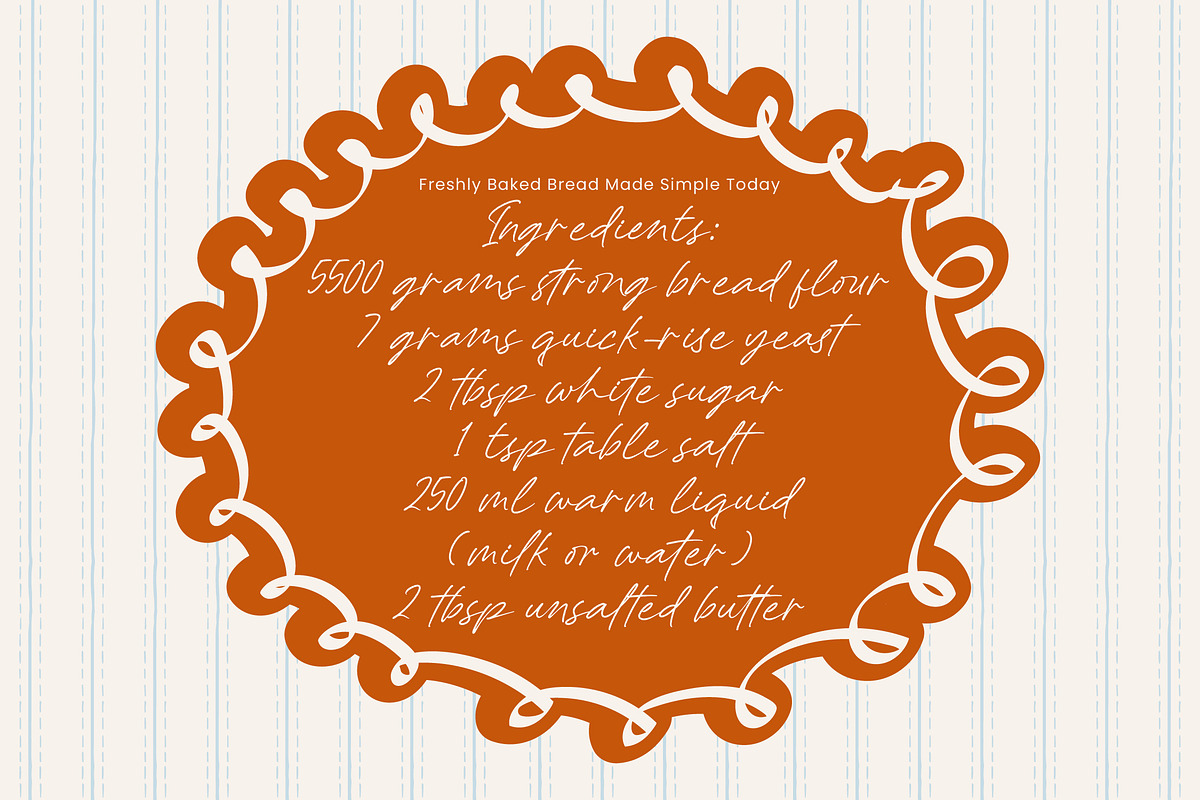 Freshly Baked Bread Made Simple Today
Ingredients:
5500 grams strong bread flour
7 grams quick-rise yeast
2 tbsp white sugar
1 tsp table salt
250 ml warm liquid
(milk or water)
2 tbsp unsalted butter